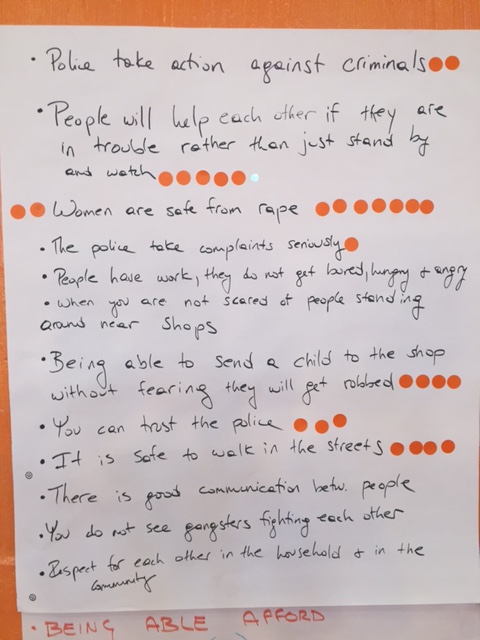 · Police take action against criminals
· People will help each other if they are
in trouble rather than just stand by
and watch
Women are safe from rape
· The police take complaints seriously
· People have work, they do not get bored, hungry + angry
· When you are not scared of people standing
around near shops
· Being able to send a child to the shop
without fearing they will get robbed
· You can trust the police
· It is safe to walk in the streets
· There is good communication betw. people
· You do not see gangsters fighting each other
· Respect for each other in the household + in the
community
· BEING ABLE AFFORD